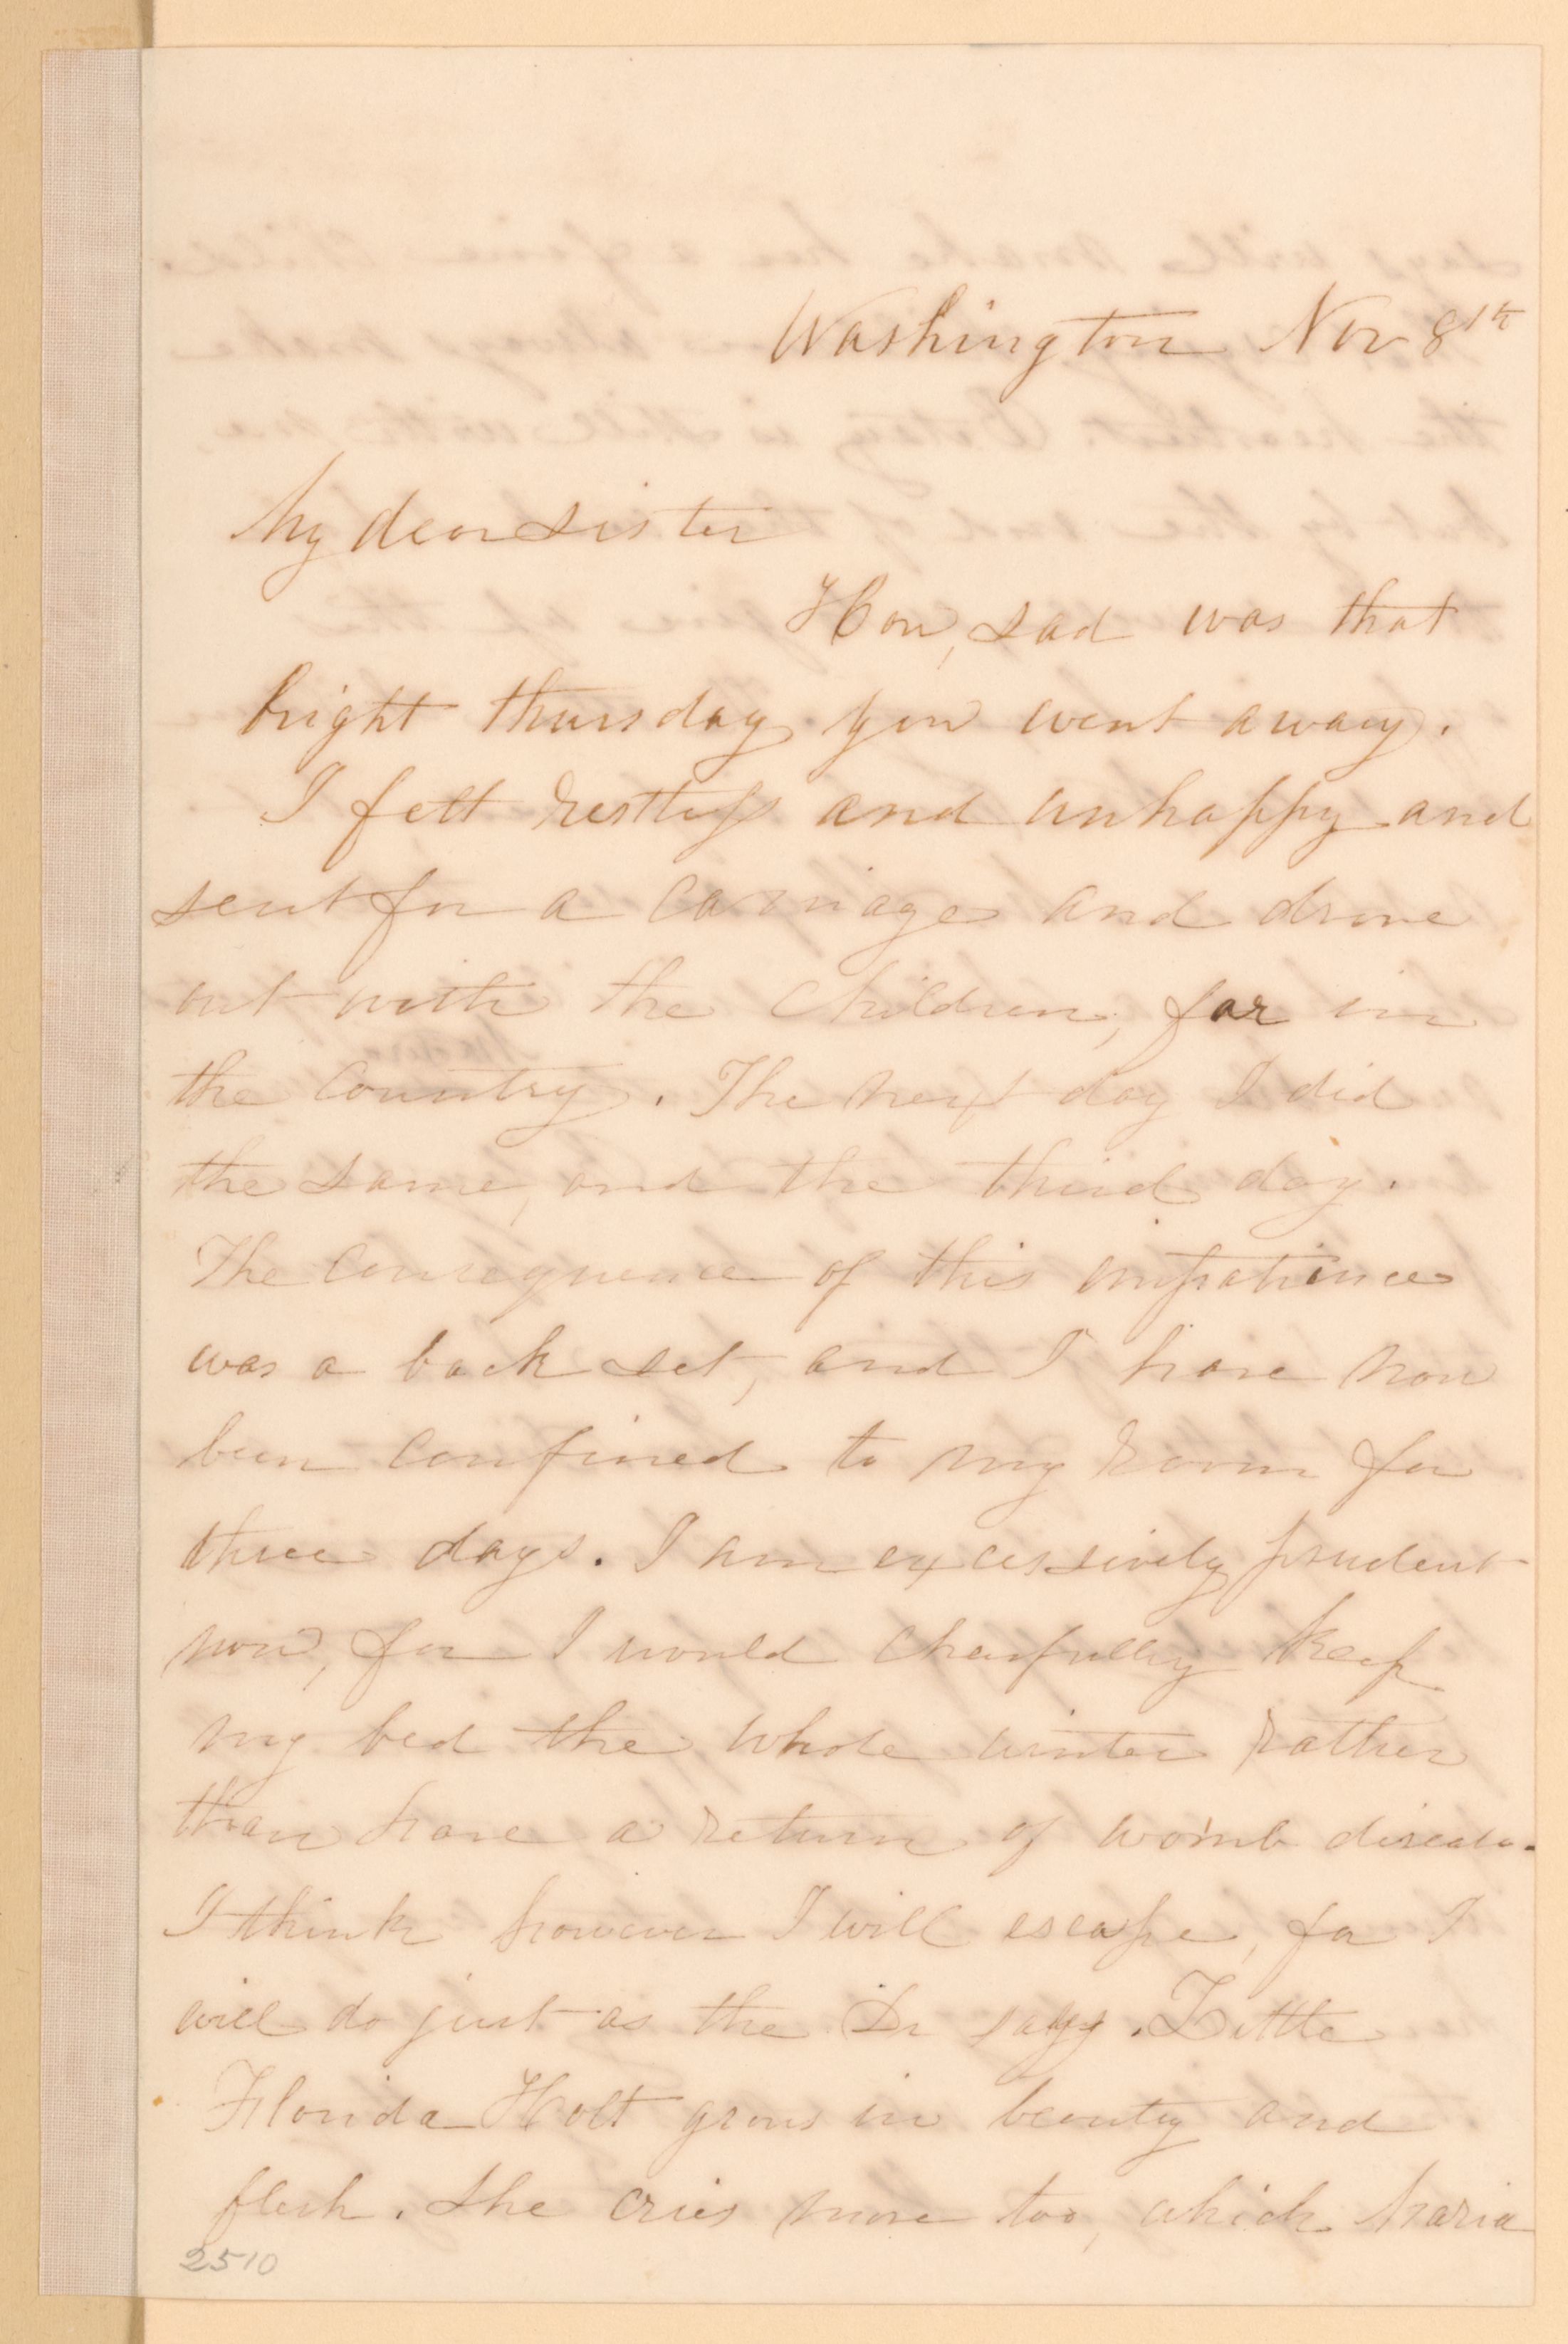 Washington Nov 8th
My dear sister
How, sad was that
bright thursday you went away.
I felt restless and unhappy and
sent for a carriage and drove
out with the children, far in
the country. The next day I did
the same, and the third day.
The consequence of this impatience
was a back set, and I have now
been confined to my room for
three days. I am excessively prudent
now, for I would chearfully keep
my bed the whole winter rather
than have a return of womb disease.
I think however I will escape, for I
will do just as the Dr says. Little
Florida Holt grows in beauty and
flesh. She cries more too, which Maria
2510